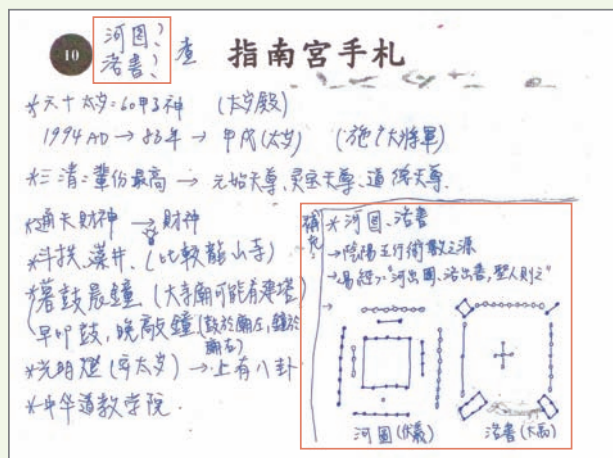 10
河图？
洛書？
查
指南宮手札
*六十太岁：60甲子神 （太岁殿）
1994 AD → 83年 → 甲戌(太岁) （施广大將軍）
*三清：輩份最高 → 元始天尊、灵宝天尊、道德天尊.
*通天財神 → 財神
*斗拱、藻井、（比較龍山寺）
*暮鼓晨鐘（大寺廟可能有建塔）
早叩鼓，晚敲鐘（鼓於廟左，鐘於廟右）
*光明燈（安太岁）→上有八卦
*中华道教学院.
補充：
*河图、洛書
→陰陽五行術數之源
→易經："河出图、洛出書，聖人則之"
→
河圖(伏羲)
洛書(大禹)